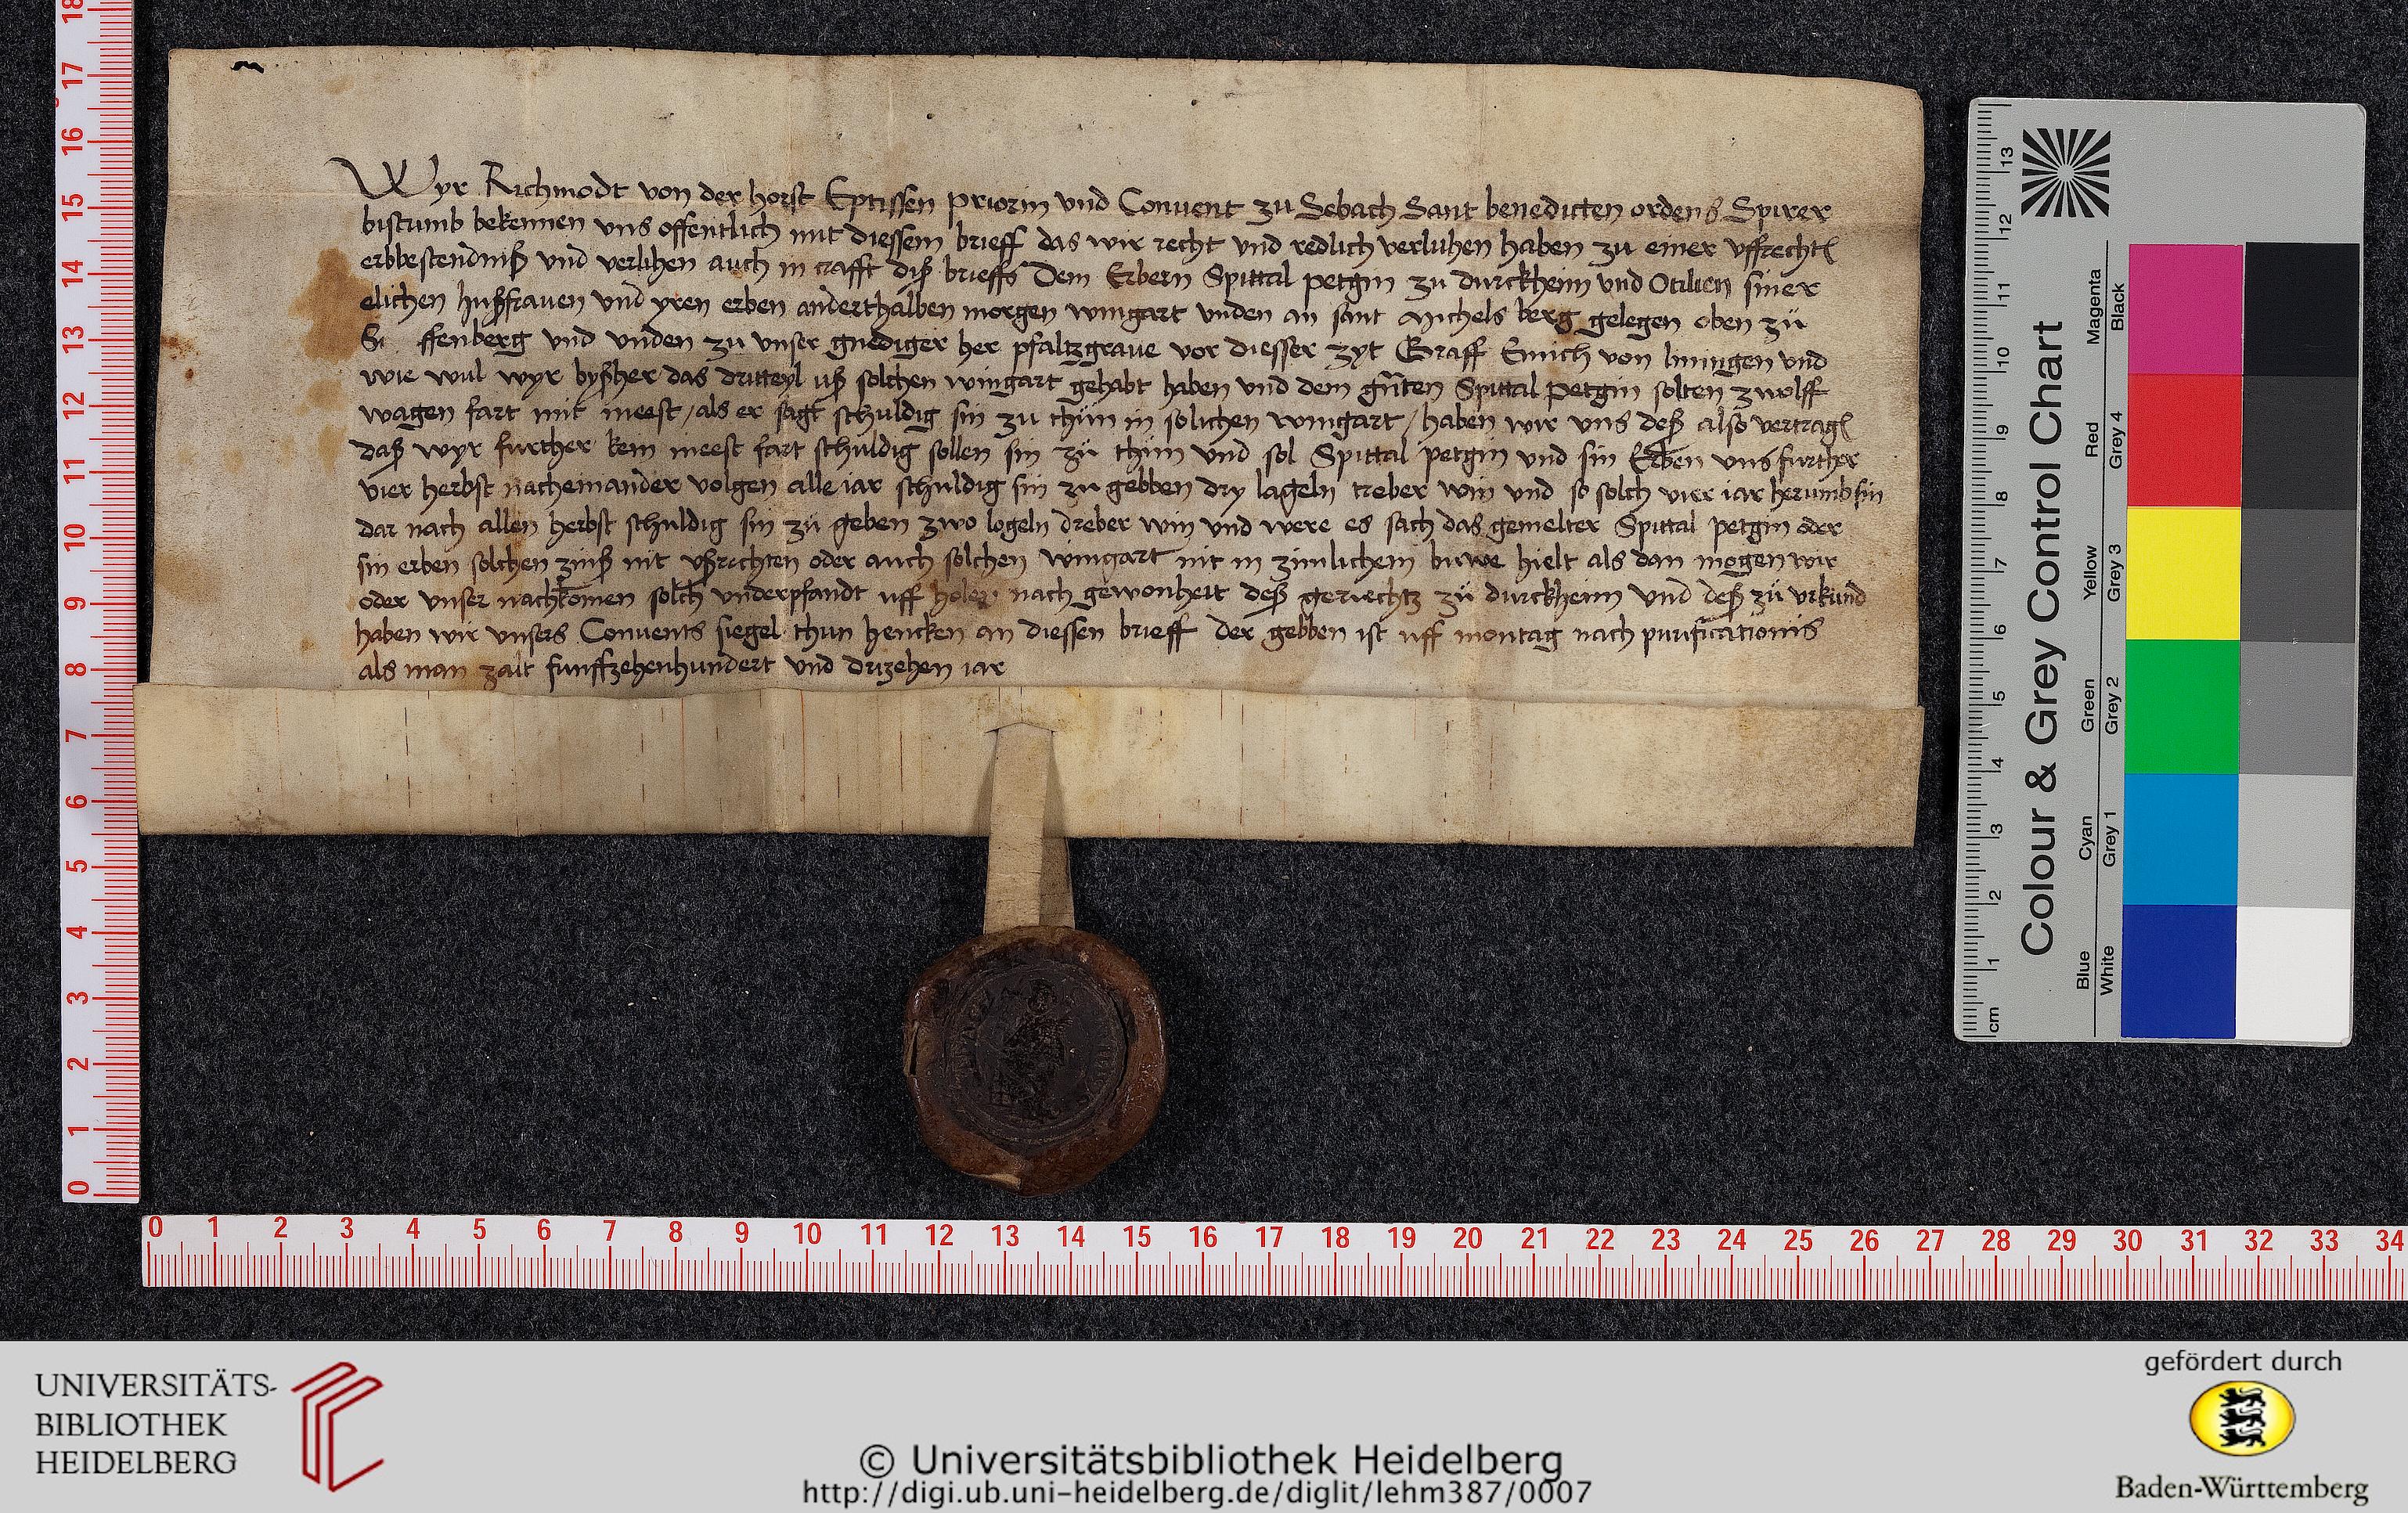 Wyr Richmodt von der horst Eptissen priorin vnd Conuent zu Sebach Sant benedicten ordens Spirer
bistumb bekennen vns offentlich mit diessem brieff das wir recht vnd redlich verluhen haben zu einer vffrecht
erbbestendniß vnd verlihen auch in crafft diß brieffs Dem Erbern Spittal petgin zu durckheim vnd Otilien siner
elichen hußfrauen vnd yren erben anderthalben morgen wingart vnden an sant Michels berg gelegen oben zü
ffenberg vnd vnden zu vnser gnediger her pfaltzgraue vor diesser zyt Graff Emich von liningen vnd
wie wul wyr byßher das dritteyl uß solchen wingart gehabt haben vnd dem gnten Spittal petgin solten zwolff
wagen fart mit meest / als er sagt schuldig sin zu thun in solichen wingart / haben wir vns deß also vertrag
daß wyr further kein meest fart schuldig sollen sin zü thün vnd sol Spittal petgin vnd sin Erben vns further
vier herbst nacheinander volgen alle iar schuldig sin zu gebben dry lageln treber win vnd so solch vier iar herumb sin
dar nach allen herbst schuldig sin zü geben zwo logeln dreber win vnd were es sach das gemelter Spittal petgin oder
sin erben solchen zinß nit vßrichten oder auch solchen wingart nit in zimlichem buwe hielt als dan mogen wir
oder vnser nachkomen solch vnderpfandt uff holen nach gewonheit deß geriechtz zü durckheim vnd deß zü vrkund
haben wir vnsers Conuents siegel thun hencken an diessen brieff der gebben ist uff montag nach purificationis
als man zalt funffzehenhundert vnd drizehen iar
Colour & Grey Control Chart
Blue Cyan Green Yellow Red Magenta
White Grey 1 Grey 2 Grey 3 Grey 4 Black
cm 1 2 3 4 5 6 7 8 9 10 11 12 13
18 17 16 15 14 13 12 11 10 9 8 7 6 5 4 3 2 1 0
0 1 2 3 4 5 6 7 8 9 10 11 12 13 14 15 16 17 18 19 20 21 22 23 24 25 26 27 28 29 30 31 32 33 34
UNIVERSITÄTS-
BIBLIOTHEK
HEIDELBERG
© Universitätsbibliothek Heidelberg
http://digi.ub.uni-heidelberg.de/diglit/lehm387/0007
gefördert durch
Baden-Württemberg